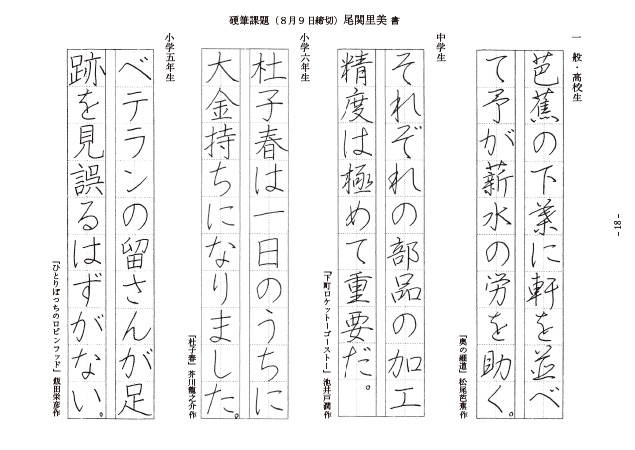 硬筆課題（８月９日締切）尾関里美 書
一般・高校生
芭蕉の下葉に軒を並べ
て予が薪水の労を助く。
『奥の細道』松尾芭蕉作
中学生
それぞれの部品の加工
精度は極めて重要だ。
『下町ロケットーゴーストー』池井戸潤作
小学六年生
杜子春は一日のうちに
大金持ちになりました。
『杜子春』芥川龍之介作
小学五年生
ベテランの留さんが足
跡を見誤るはずがない。
『ひとりぼっちのロビンフッド』飯田栄彦作
- 18 -